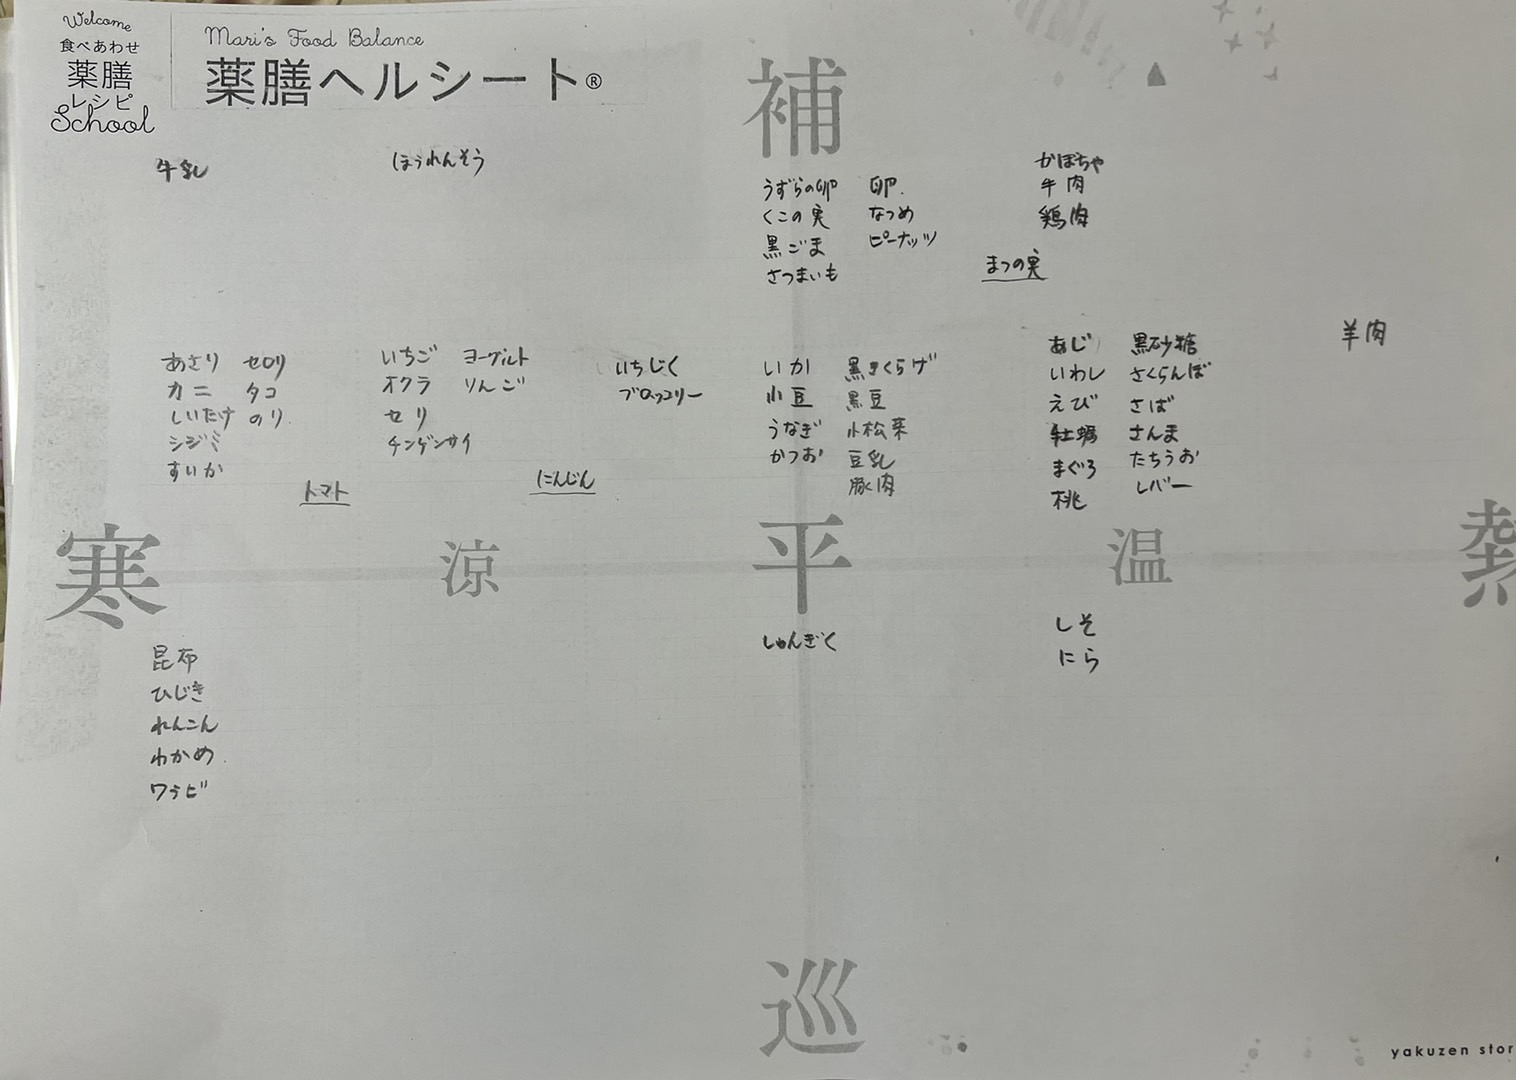 Welcome
食べあわせ
薬膳
レシピ
School
Mari's Food Balance
薬膳ヘルシート®
補
牛乳
ほうれんそう
うずらの卵 卵.
くこの実 なつめ
黒ごま ピーナッツ
さつまいも
かぼちゃ
牛肉
鶏肉
まつの実
あさり セロリ
カニ タコ
しいたけ のり
シジミ
すいか
トマト
いちご ヨーグルト
オクラ りんご
セリ
チンゲンサイ
にんじん
いちじく
ブロッコリー
いか 黒きくらげ
小豆 黒豆
うなぎ 小松菜
かつお 豆乳
豚肉
あじ 黒砂糖
いわし さくらんぼ
えび さば
牡蠣 さんま
まぐろ たちうお
桃 レバー
羊肉
寒 涼 平 温 熱
昆布
ひじき
れんこん
わかめ
ワラビ
しゅんぎく
しそ
にら
巡
yakuzen stor